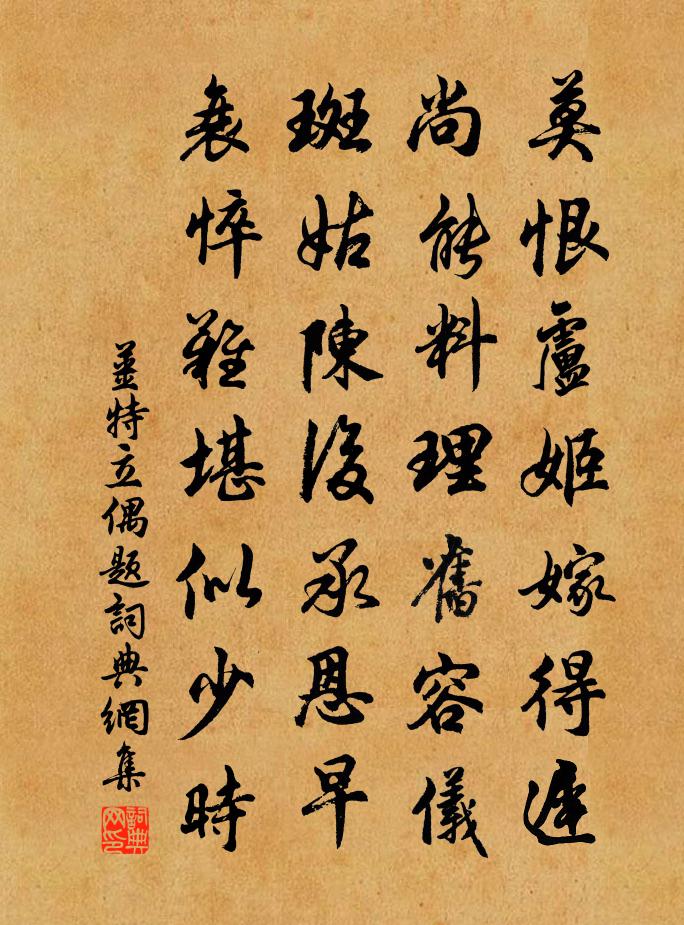 莫恨盧姬嫁得遲
尚能料理舊容儀
斑姑陳後承恩早
衰悴難堪似少時
姜特立偶題詞典網集
詞典网印